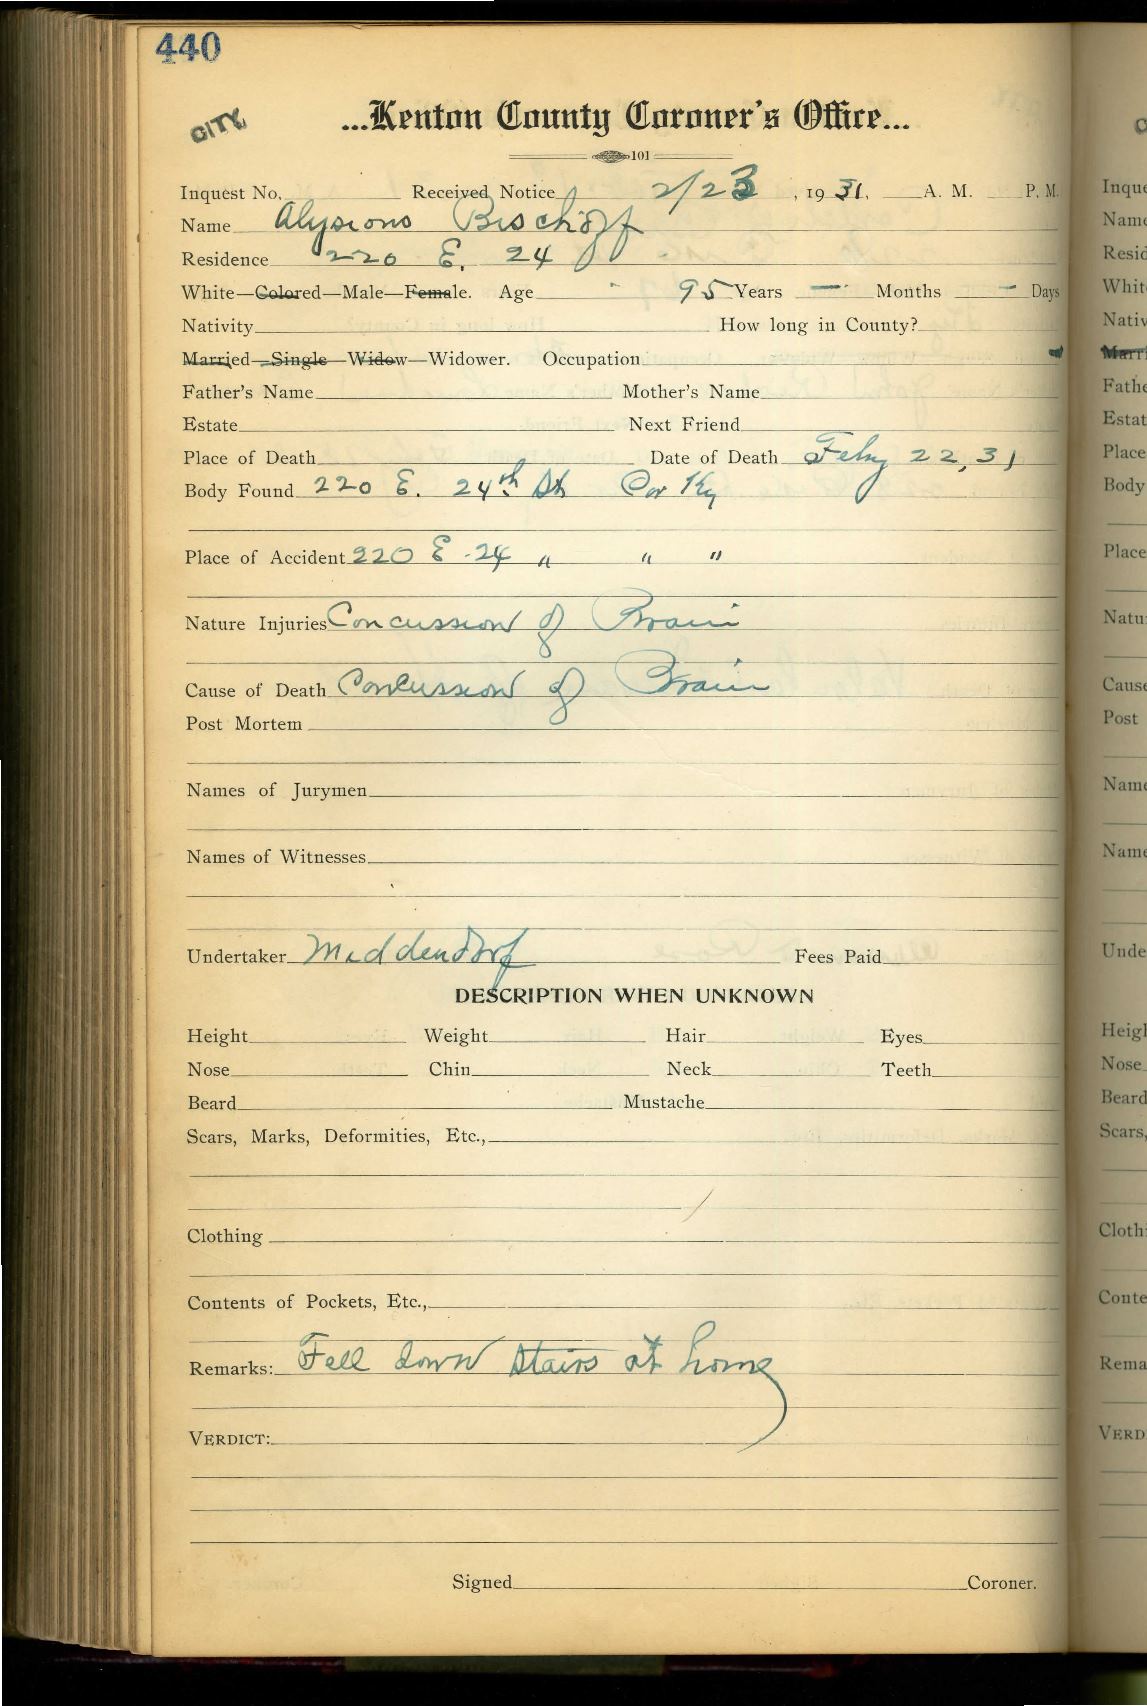 440
CITY
...Kenton County Coroner's Office...
101
Inquest No. Received Notice 2/23, 1931, A. M. P. M.
Name Alysions Bischoff
Residence 220 E. 24
White—Colored—Male—Female. Age 95 Years — Months — Days
Nativity How long in County?
Married—Single—Widow—Widower. Occupation
Father's Name Mother's Name
Estate Next Friend
Place of Death Date of Death Feby 22, 31
Body Found 220 E. 24th St Cov Ky
Place of Accident 220 E 24 " " "
Nature Injuries Concussion of Brain
Cause of Death Concussion of Brain
Post Mortem
Names of Jurymen
Names of Witnesses
Undertaker Middendorf Fees Paid
DESCRIPTION WHEN UNKNOWN
Height Weight Hair Eyes
Nose Chin Neck Teeth
Beard Mustache
Scars, Marks, Deformities, Etc.,
Clothing
Contents of Pockets, Etc.,
Remarks: Fell down stairs at home
VERDICT:
Signed Coroner.